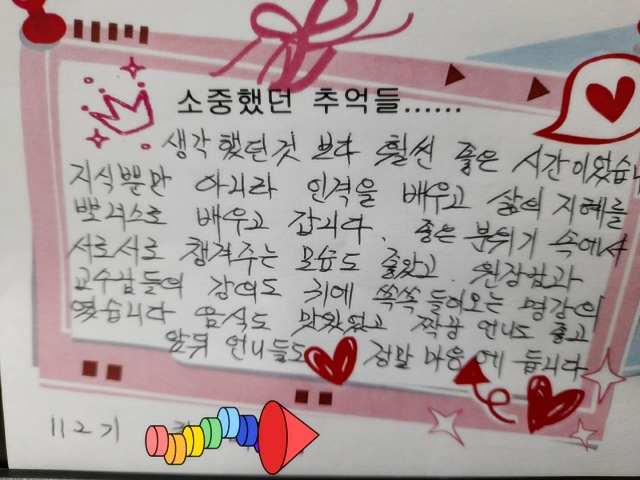 소중했던 추억들......
생각했던것 보다 훨씬 좋은 시간이었습니
지식뿐만 아니라 인격을 배우고 삶의 지혜를
뽀너스로 배우고 갑니다. 좋은 분위기 속에서
서로서로 챙겨주는 모습도 좋았고. 원장님과
교수님들의 강의도 귀에 쏙쏙 들어오는 명강의
였습니다 음식도 맛있었고 짝꿍 언니도 좋고
앞뒤 언니들도 정말 마음에 듭니다
112기